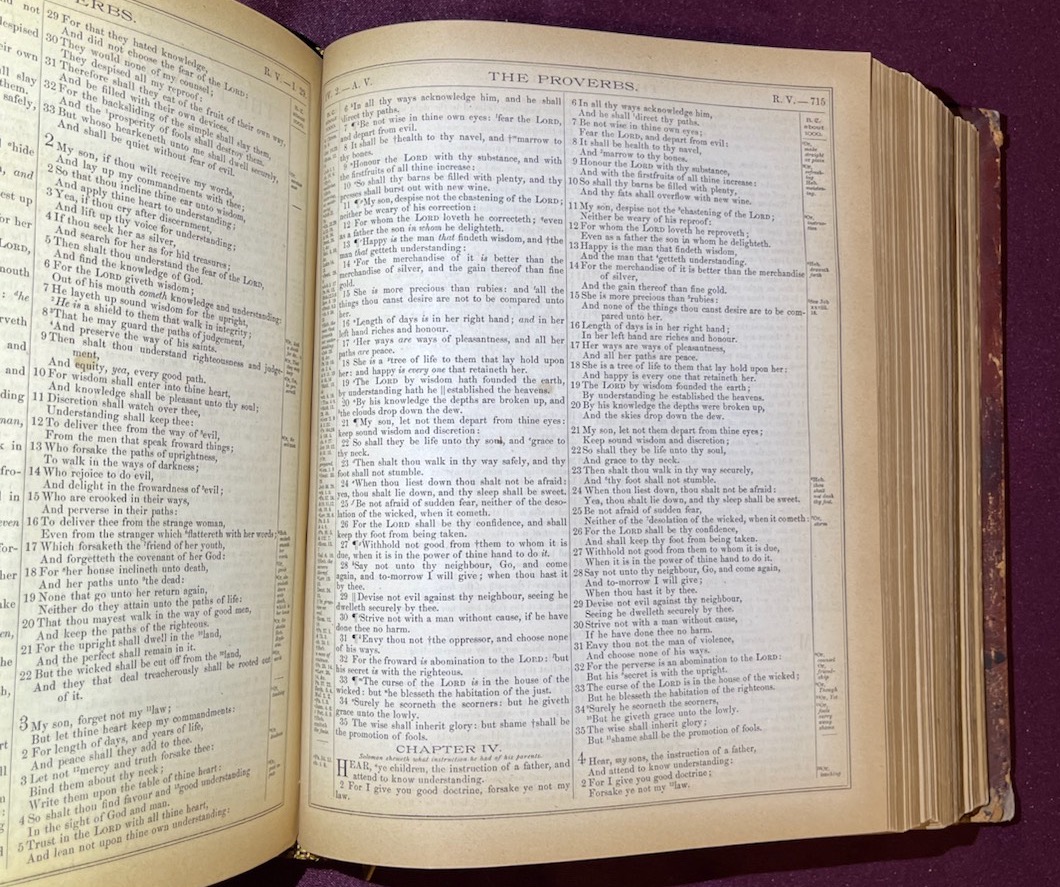 ERBS.
R. V.—1 29.
29 For that they hated knowledge,
And did not choose the fear of the LORD:
30 They would none of my counsel;
They despised all my reproof:
31 Therefore shall they eat of the fruit of their own way,
And be filled with their own devices.
32 For the backsliding of the simple shall slay them,
And the prosperity of fools shall destroy them.
33 But whoso hearkeneth unto me shall dwell securely,
And shall be quiet without fear of evil.
2 My son, if thou wilt receive my words,
And lay up my commandments with thee;
2 So that thou incline thine ear unto wisdom,
And apply thine heart to understanding;
3 Yea, if thou cry after discernment,
And lift up thy voice for understanding;
4 If thou seek her as silver,
And search for her as for hid treasures;
5 Then shalt thou understand the fear of the LORD,
And find the knowledge of God.
6 For the LORD giveth wisdom;
Out of his mouth cometh knowledge and understanding:
7 He layeth up sound wisdom for the upright,
He is a shield to them that walk in integrity;
8 That he may guard the paths of judgement,
And preserve the way of his saints.
9 Then shalt thou understand righteousness and judge-
ment,
And equity, yea, every good path.
10 For wisdom shall enter into thine heart,
And knowledge shall be pleasant unto thy soul;
11 Discretion shall watch over thee,
Understanding shall keep thee:
12 To deliver thee from the way of evil,
From the men that speak froward things;
13 Who forsake the paths of uprightness,
To walk in the ways of darkness;
14 Who rejoice to do evil,
And delight in the frowardness of evil;
15 Who are crooked in their ways,
And perverse in their paths:
16 To deliver thee from the strange woman,
Even from the stranger which flattereth with her words;
17 Which forsaketh the friend of her youth,
And forgetteth the covenant of her God:
18 For her house inclineth unto death,
And her paths unto the dead:
19 None that go unto her return again,
Neither do they attain unto the paths of life:
20 That thou mayest walk in the way of good men,
And keep the paths of the righteous.
21 For the upright shall dwell in the land,
And the perfect shall remain in it.
22 But the wicked shall be cut off from the land,
And they that deal treacherously shall be rooted out
of it.
3 My son, forget not my law;
But let thine heart keep my commandments:
2 For length of days, and years of life,
And peace, shall they add to thee.
3 Let not mercy and truth forsake thee:
Bind them about thy neck;
Write them upon the table of thine heart:
4 So shalt thou find favour and good understanding
In the sight of God and man.
5 Trust in the LORD with all thine heart,
And lean not upon thine own understanding:
A. V.
THE PROVERBS.
R. V.—715
6 In all thy ways acknowledge him, and he shall
direct thy paths.
7 ¶ Be not wise in thine own eyes: fear the LORD,
and depart from evil.
8 It shall be †health to thy navel, and †marrow to
thy bones.
9 Honour the LORD with thy substance, and with
the firstfruits of all thine increase:
10 So shall thy barns be filled with plenty, and thy
presses shall burst out with new wine.
11 ¶ My son, despise not the chastening of the LORD;
neither be weary of his correction:
12 For whom the LORD loveth he correcteth; even
as a father the son in whom he delighteth.
13 ¶ Happy is the man that findeth wisdom, and †the
man that getteth understanding:
14 For the merchandise of it is better than the
merchandise of silver, and the gain thereof than fine
gold.
15 She is more precious than rubies: and all the
things thou canst desire are not to be compared unto
her.
16 Length of days is in her right hand; and in her
left hand riches and honour.
17 Her ways are ways of pleasantness, and all her
paths are peace.
18 She is a tree of life to them that lay hold upon
her: and happy is every one that retaineth her.
19 The LORD by wisdom hath founded the earth,
by understanding hath he ‖ established the heavens.
20 By his knowledge the depths are broken up, and
the clouds drop down the dew.
21 ¶ My son, let not them depart from thine eyes:
keep sound wisdom and discretion:
22 So shall they be life unto thy soul, and grace to
thy neck.
23 Then shalt thou walk in thy way safely, and thy
foot shall not stumble.
24 When thou liest down thou shalt not be afraid:
yea, thou shalt lie down, and thy sleep shall be sweet.
25 Be not afraid of sudden fear, neither of the deso-
lation of the wicked, when it cometh.
26 For the LORD shall be thy confidence, and shall
keep thy foot from being taken.
27 ¶ Withhold not good from †them to whom it is
due, when it is in the power of thine hand to do it.
28 Say not unto thy neighbour, Go, and come
again, and to-morrow I will give; when thou hast it
by thee.
29 ‖ Devise not evil against thy neighbour, seeing he
dwelleth securely by thee.
30 ¶ Strive not with a man without cause, if he have
done thee no harm.
31 ¶ Envy thou not †the oppressor, and choose none
of his ways.
32 For the froward is abomination to the LORD: but
his secret is with the righteous.
33 ¶ The curse of the LORD is in the house of the
wicked: but he blesseth the habitation of the just.
34 Surely he scorneth the scorners: but he giveth
grace unto the lowly.
35 The wise shall inherit glory: but shame †shall be
the promotion of fools.
CHAPTER IV.
Solomon sheweth what instruction he had of his parents.
HEAR, ye children, the instruction of a father, and
attend to know understanding.
2 For I give you good doctrine, forsake ye not my
law.
6 In all thy ways acknowledge him,
And he shall direct thy paths.
7 Be not wise in thine own eyes;
Fear the LORD, and depart from evil:
8 It shall be health to thy navel,
And marrow to thy bones.
9 Honour the LORD with thy substance,
And with the firstfruits of all thine increase:
10 So shall thy barns be filled with plenty,
And thy fats shall overflow with new wine.
11 My son, despise not the chastening of the LORD;
Neither be weary of his reproof:
12 For whom the LORD loveth he reproveth;
Even as a father the son in whom he delighteth.
13 Happy is the man that findeth wisdom,
And the man that getteth understanding.
14 For the merchandise of it is better than the merchandise
of silver,
And the gain thereof than fine gold.
15 She is more precious than rubies:
And none of the things thou canst desire are to be com-
pared unto her.
16 Length of days is in her right hand;
In her left hand are riches and honour.
17 Her ways are ways of pleasantness,
And all her paths are peace.
18 She is a tree of life to them that lay hold upon her:
And happy is every one that retaineth her.
19 The LORD by wisdom founded the earth;
By understanding he established the heavens.
20 By his knowledge the depths were broken up,
And the skies drop down the dew.
21 My son, let not them depart from thine eyes;
Keep sound wisdom and discretion;
22 So shall they be life unto thy soul,
And grace to thy neck.
23 Then shalt thou walk in thy way securely,
And thy foot shall not stumble.
24 When thou liest down, thou shalt not be afraid:
Yea, thou shalt lie down, and thy sleep shall be sweet.
25 Be not afraid of sudden fear,
Neither of the desolation of the wicked, when it cometh:
26 For the LORD shall be thy confidence,
And shall keep thy foot from being taken.
27 Withhold not good from them to whom it is due,
When it is in the power of thine hand to do it.
28 Say not unto thy neighbour, Go, and come again,
And to-morrow I will give;
When thou hast it by thee.
29 Devise not evil against thy neighbour,
Seeing he dwelleth securely by thee.
30 Strive not with a man without cause,
If he have done thee no harm.
31 Envy thou not the man of violence,
And choose none of his ways.
32 For the perverse is an abomination to the LORD:
But his secret is with the upright.
33 The curse of the LORD is in the house of the wicked;
But he blesseth the habitation of the righteous.
34 Surely he scorneth the scorners,
But he giveth grace unto the lowly.
35 The wise shall inherit glory;
But shame shall be the promotion of fools.
4 Hear, my sons, the instruction of a father,
And attend to know understanding:
2 For I give you good doctrine;
Forsake ye not my law.
B. C.
about
1000.